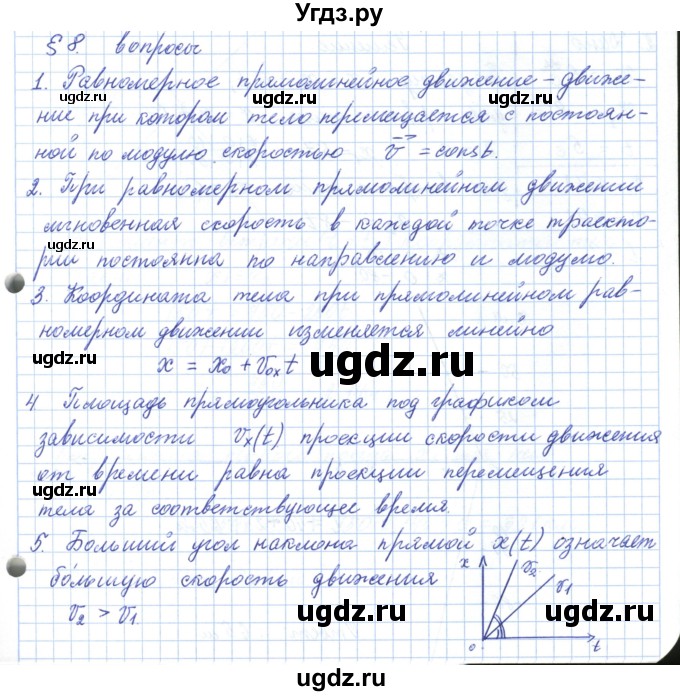 Угдз.ру
§ 8. вопросы
1. Равномерное прямолинейное движение – движе-
ние при котором тело перемещается с постоян-
ной по модулю скоростью v⃗ = const.
2. При равномерном прямолинейном движении
мгновенная скорость в каждой точке траекто-
рии постоянна по направлению и модулю.
3. Координата тела при прямолинейном рав-
номерном движении изменяется линейно
x = x₀ + v₀ₓt
4 Площадь прямоугольника под графиком
зависимости vₓ(t) проекции скорости движения
от времени равна проекции перемещения
тела за соответствующее время.
5. Больший угол наклона прямой x(t) означает
бо́льшую скорость движения
v₂ > v₁
x
v₂
v₁
0
t
ugdz.ru
ugdz.ru
ugdz.ru
ugdz.ru
ugdz.ru
ugdz.ru
ugdz.ru
ugdz.ru
ugdz.ru
ugdz.ru
ugdz.ru